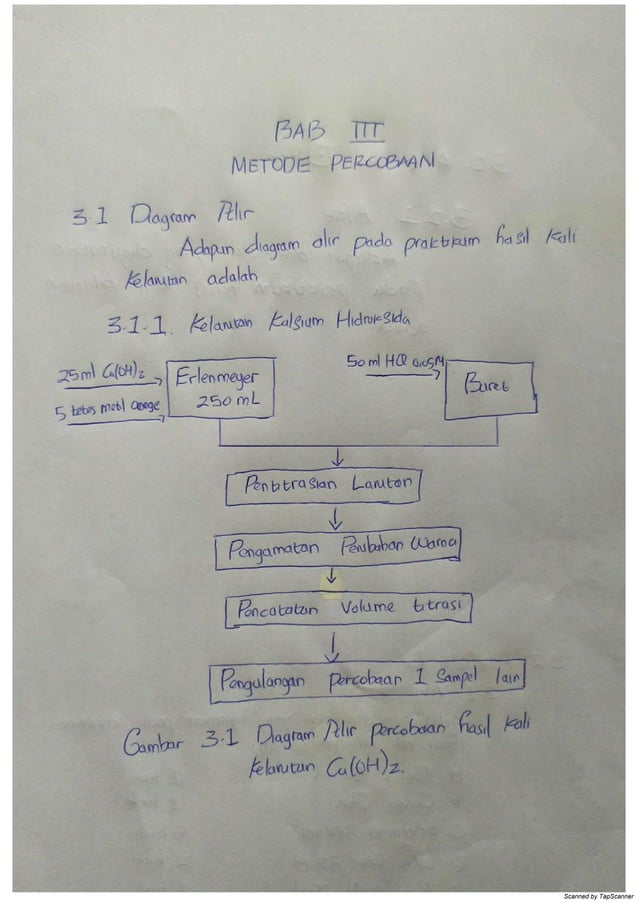 BAB III
METODE PERCOBAAN
3.1 Diagram Alir
Adapun diagram alir pada praktikum hasil kali
kelarutan adalah
3.1.1. Kelarutan Kalsium Hidroksida
25ml Ca(OH)2
5 tetes metil orange
Erlenmeyer
250 mL
50 ml HCl 0.05M
Buret
Pentitrasian Larutan
Pengamatan Perubahan Warna
Pencatatan Volume titrasi
Pengulangan percobaan 1 Sampel lain
Gambar 3.1 Diagram Alir percobaan hasil kali
kelarutan Ca(OH)2.
Scanned by TapScanner